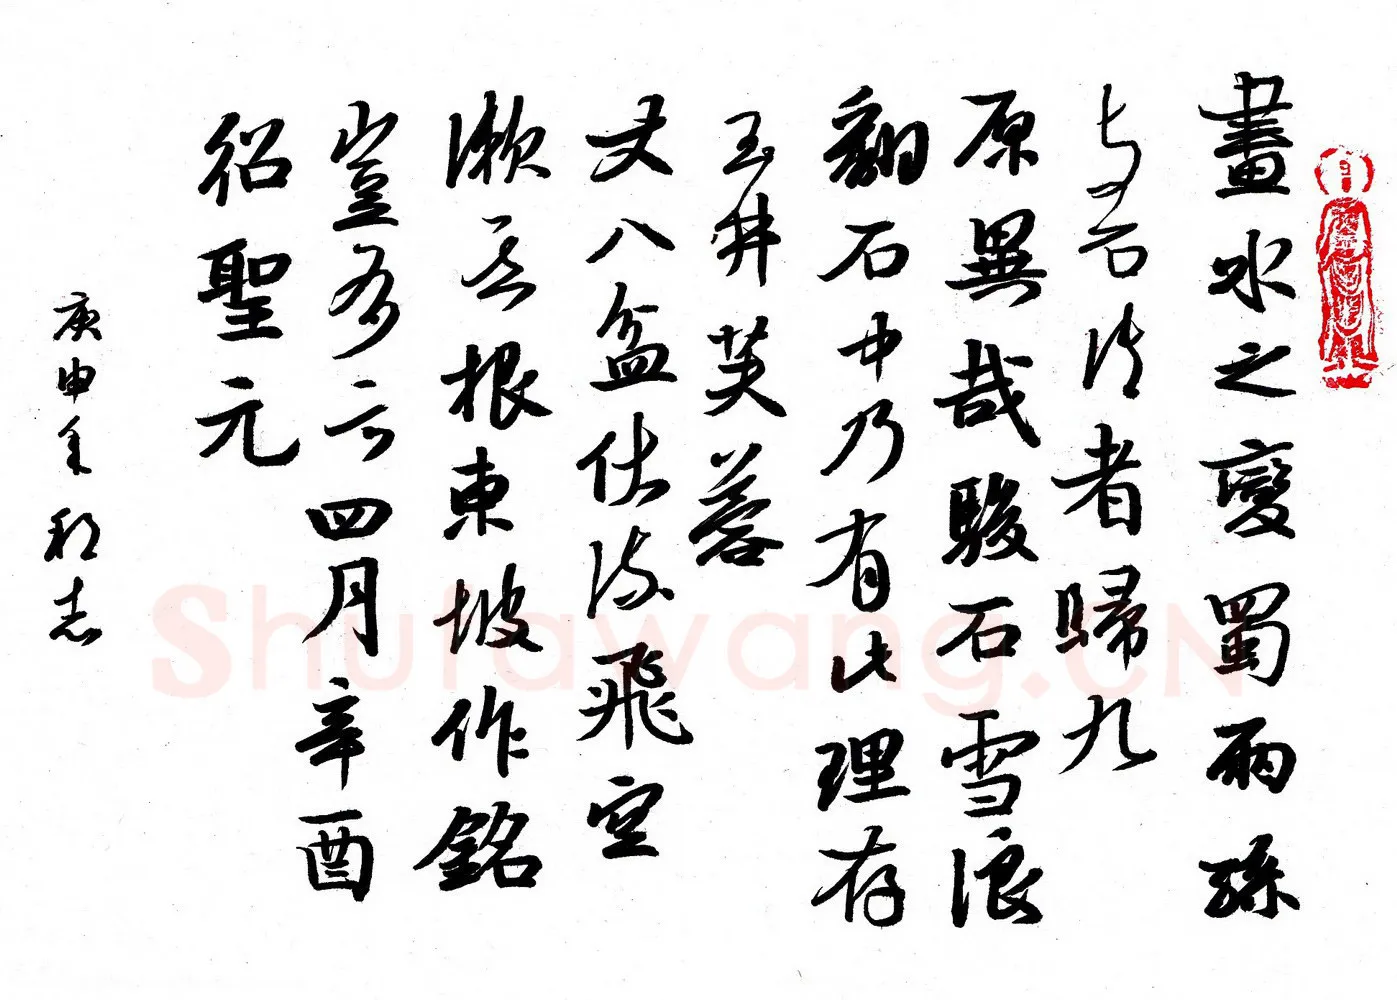 畫水之變蜀兩孫
与者歸九
原異哉駿石雪浪
翻石中乃有此理存
玉井芙蓉
丈八盆伏流飛空
漱其根東坡作銘
豈多言四月辛酉
紹聖元
庚申年志
Shufawang.CN